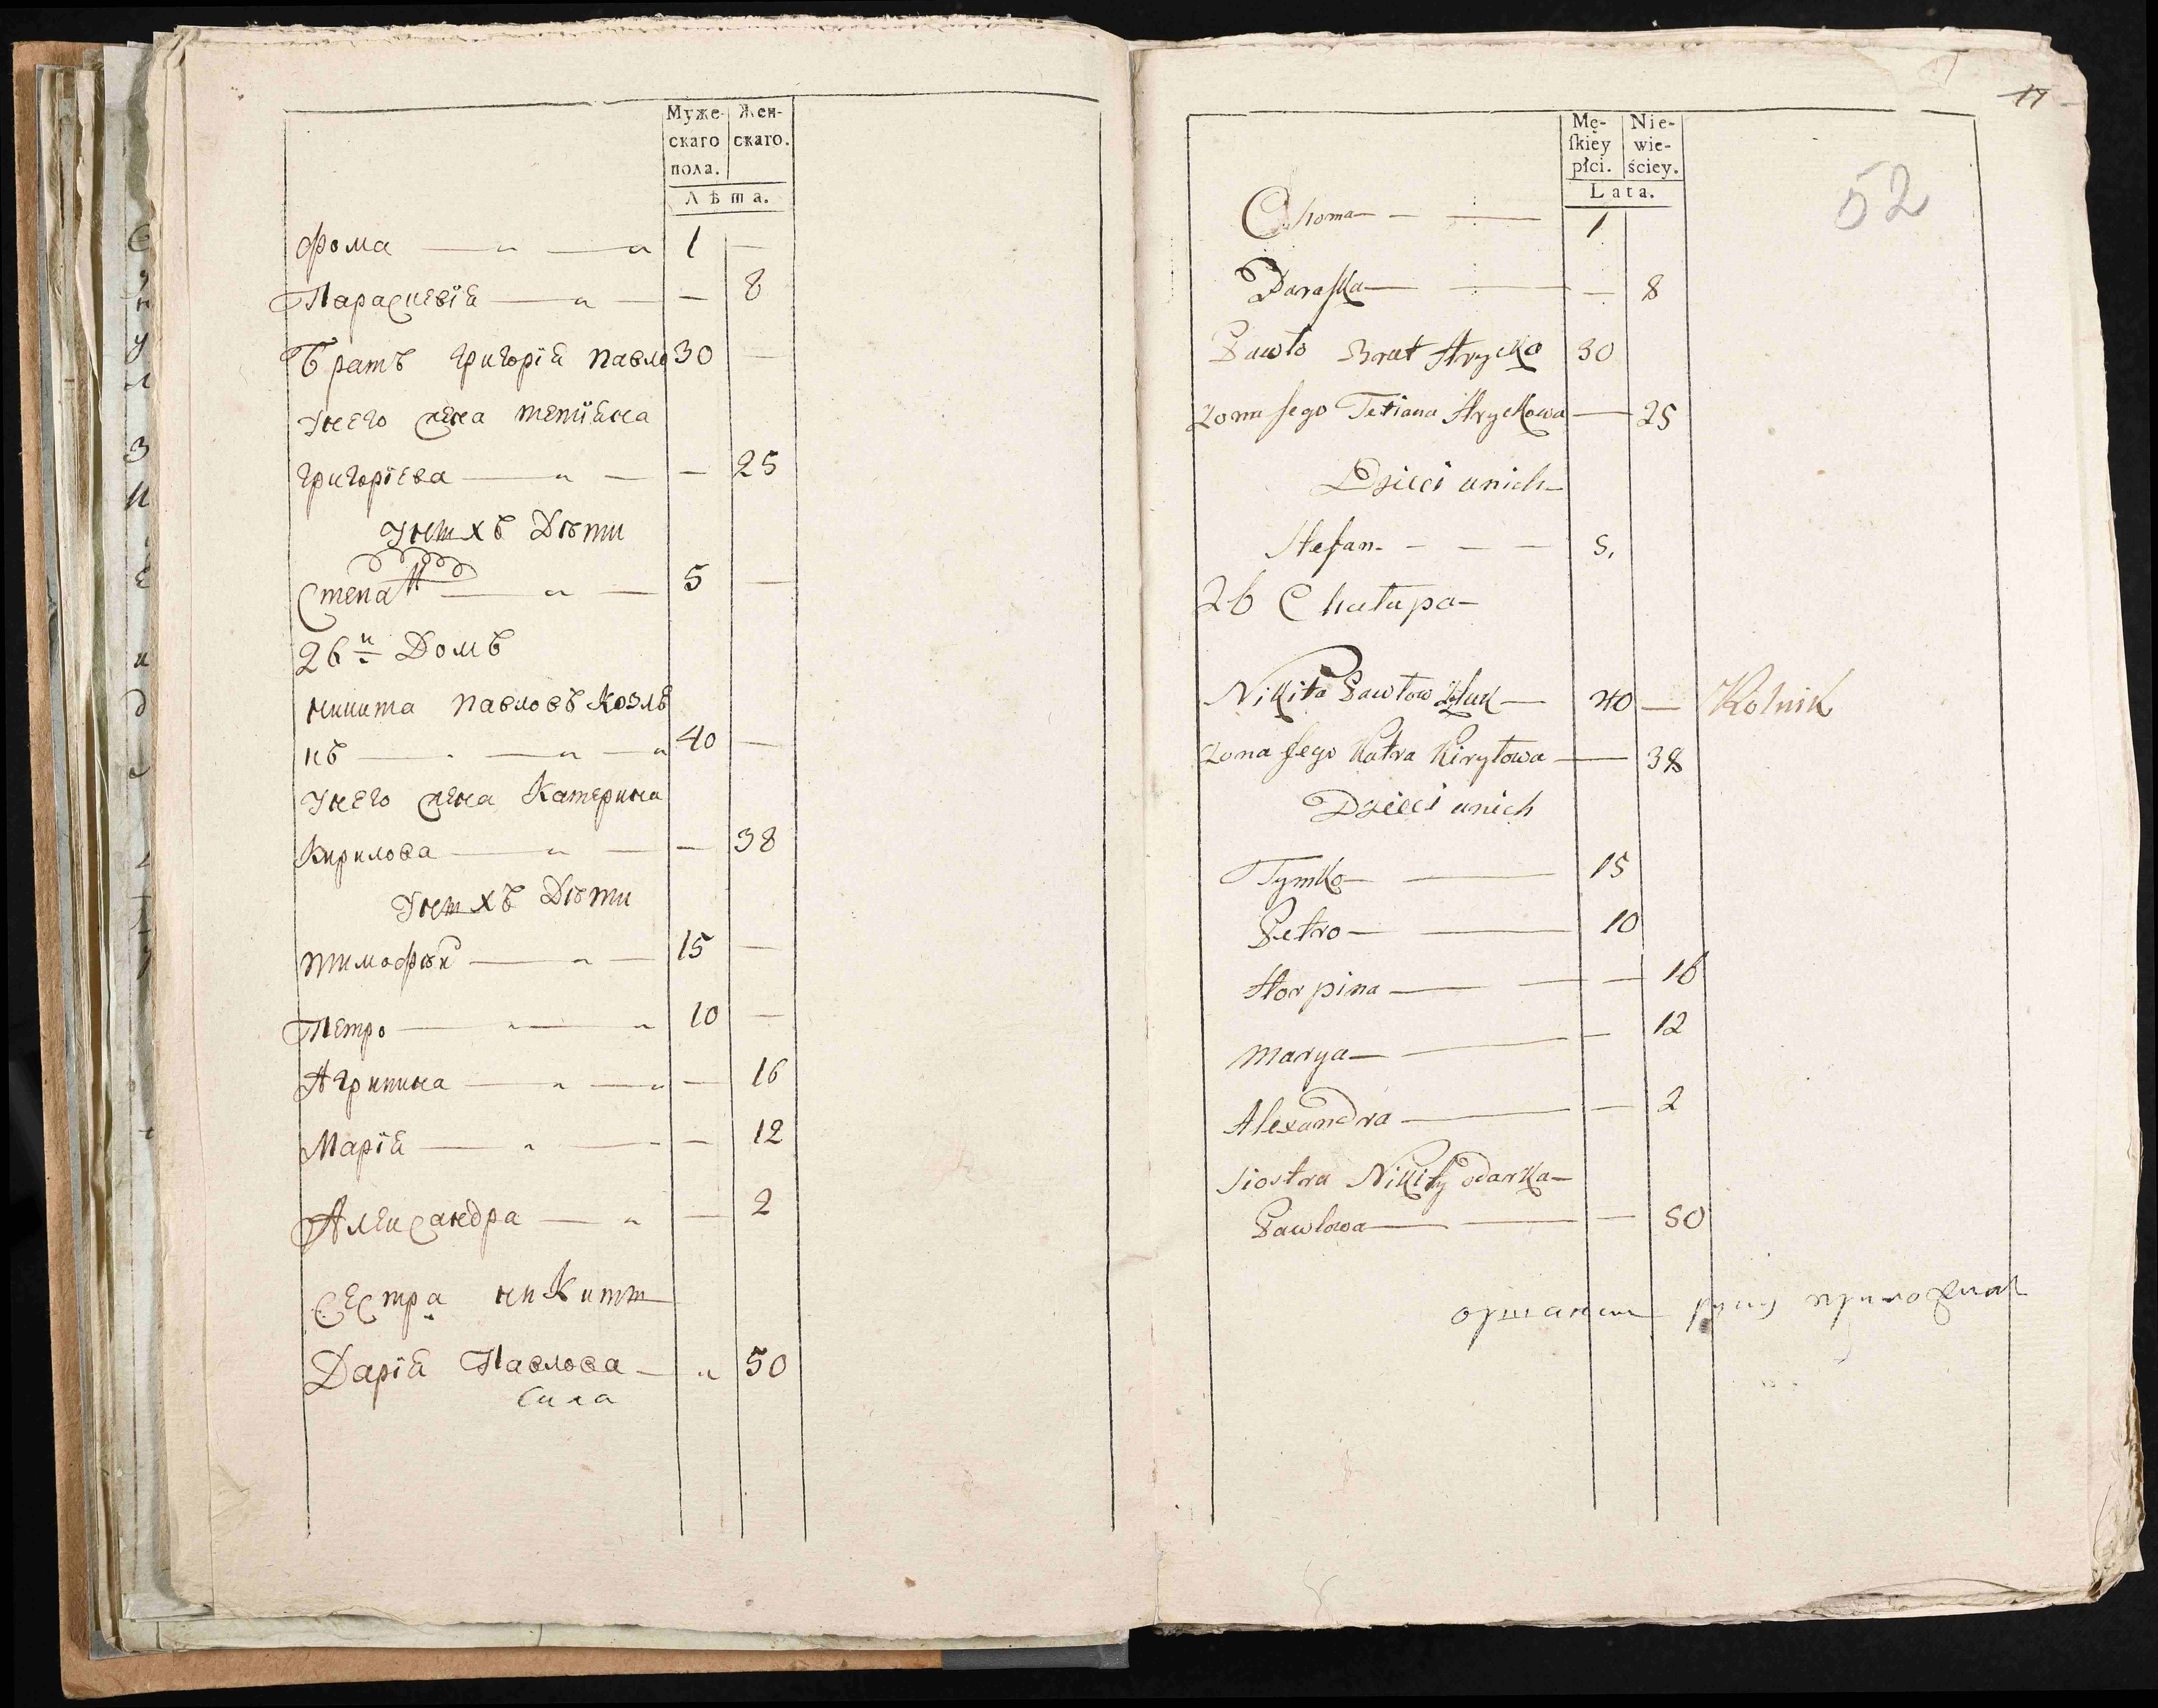 Муже- Жен-
скаго скаго.
пола.
Лѣта.
Фома 1 —
Параскевія — 8
Братъ григорій павло 30 —
Унего жена тетiяна
григорієва — 25
Унихъ Дѣти
Степанъ 5 —
26й Домъ
никита павловъ Козлю
къ 40 —
Унего жена Катерина
Кирилова — 38
Унихъ Дѣти
тимофѣй 15 —
Петро 10 —
Агрипина — 16
Марія — 12
Александра — 2
Сестра никиты
Дарія Павлова 50
Сила
17
52
Mę- Nie-
ſkiey wie-
płci. ściey.
Lata.
Choma 1
Paraſka — 8
Pawło Brat Hrycko 30
Zona Jego Tetiana Hryckowa — 25
Dzieci unich
Stefan 5.
26 Chałupa
Nikita Pawłow 40 — Rolnik
Zona Jego Katra Kiryłowa — 38
Dzieci unich
Tymko 15
Petro 10
Horpina — 16
Marya — 12
Alexandra — 2
Siostra Nikity odarka
Pawlowa — 50
руку приложилъ